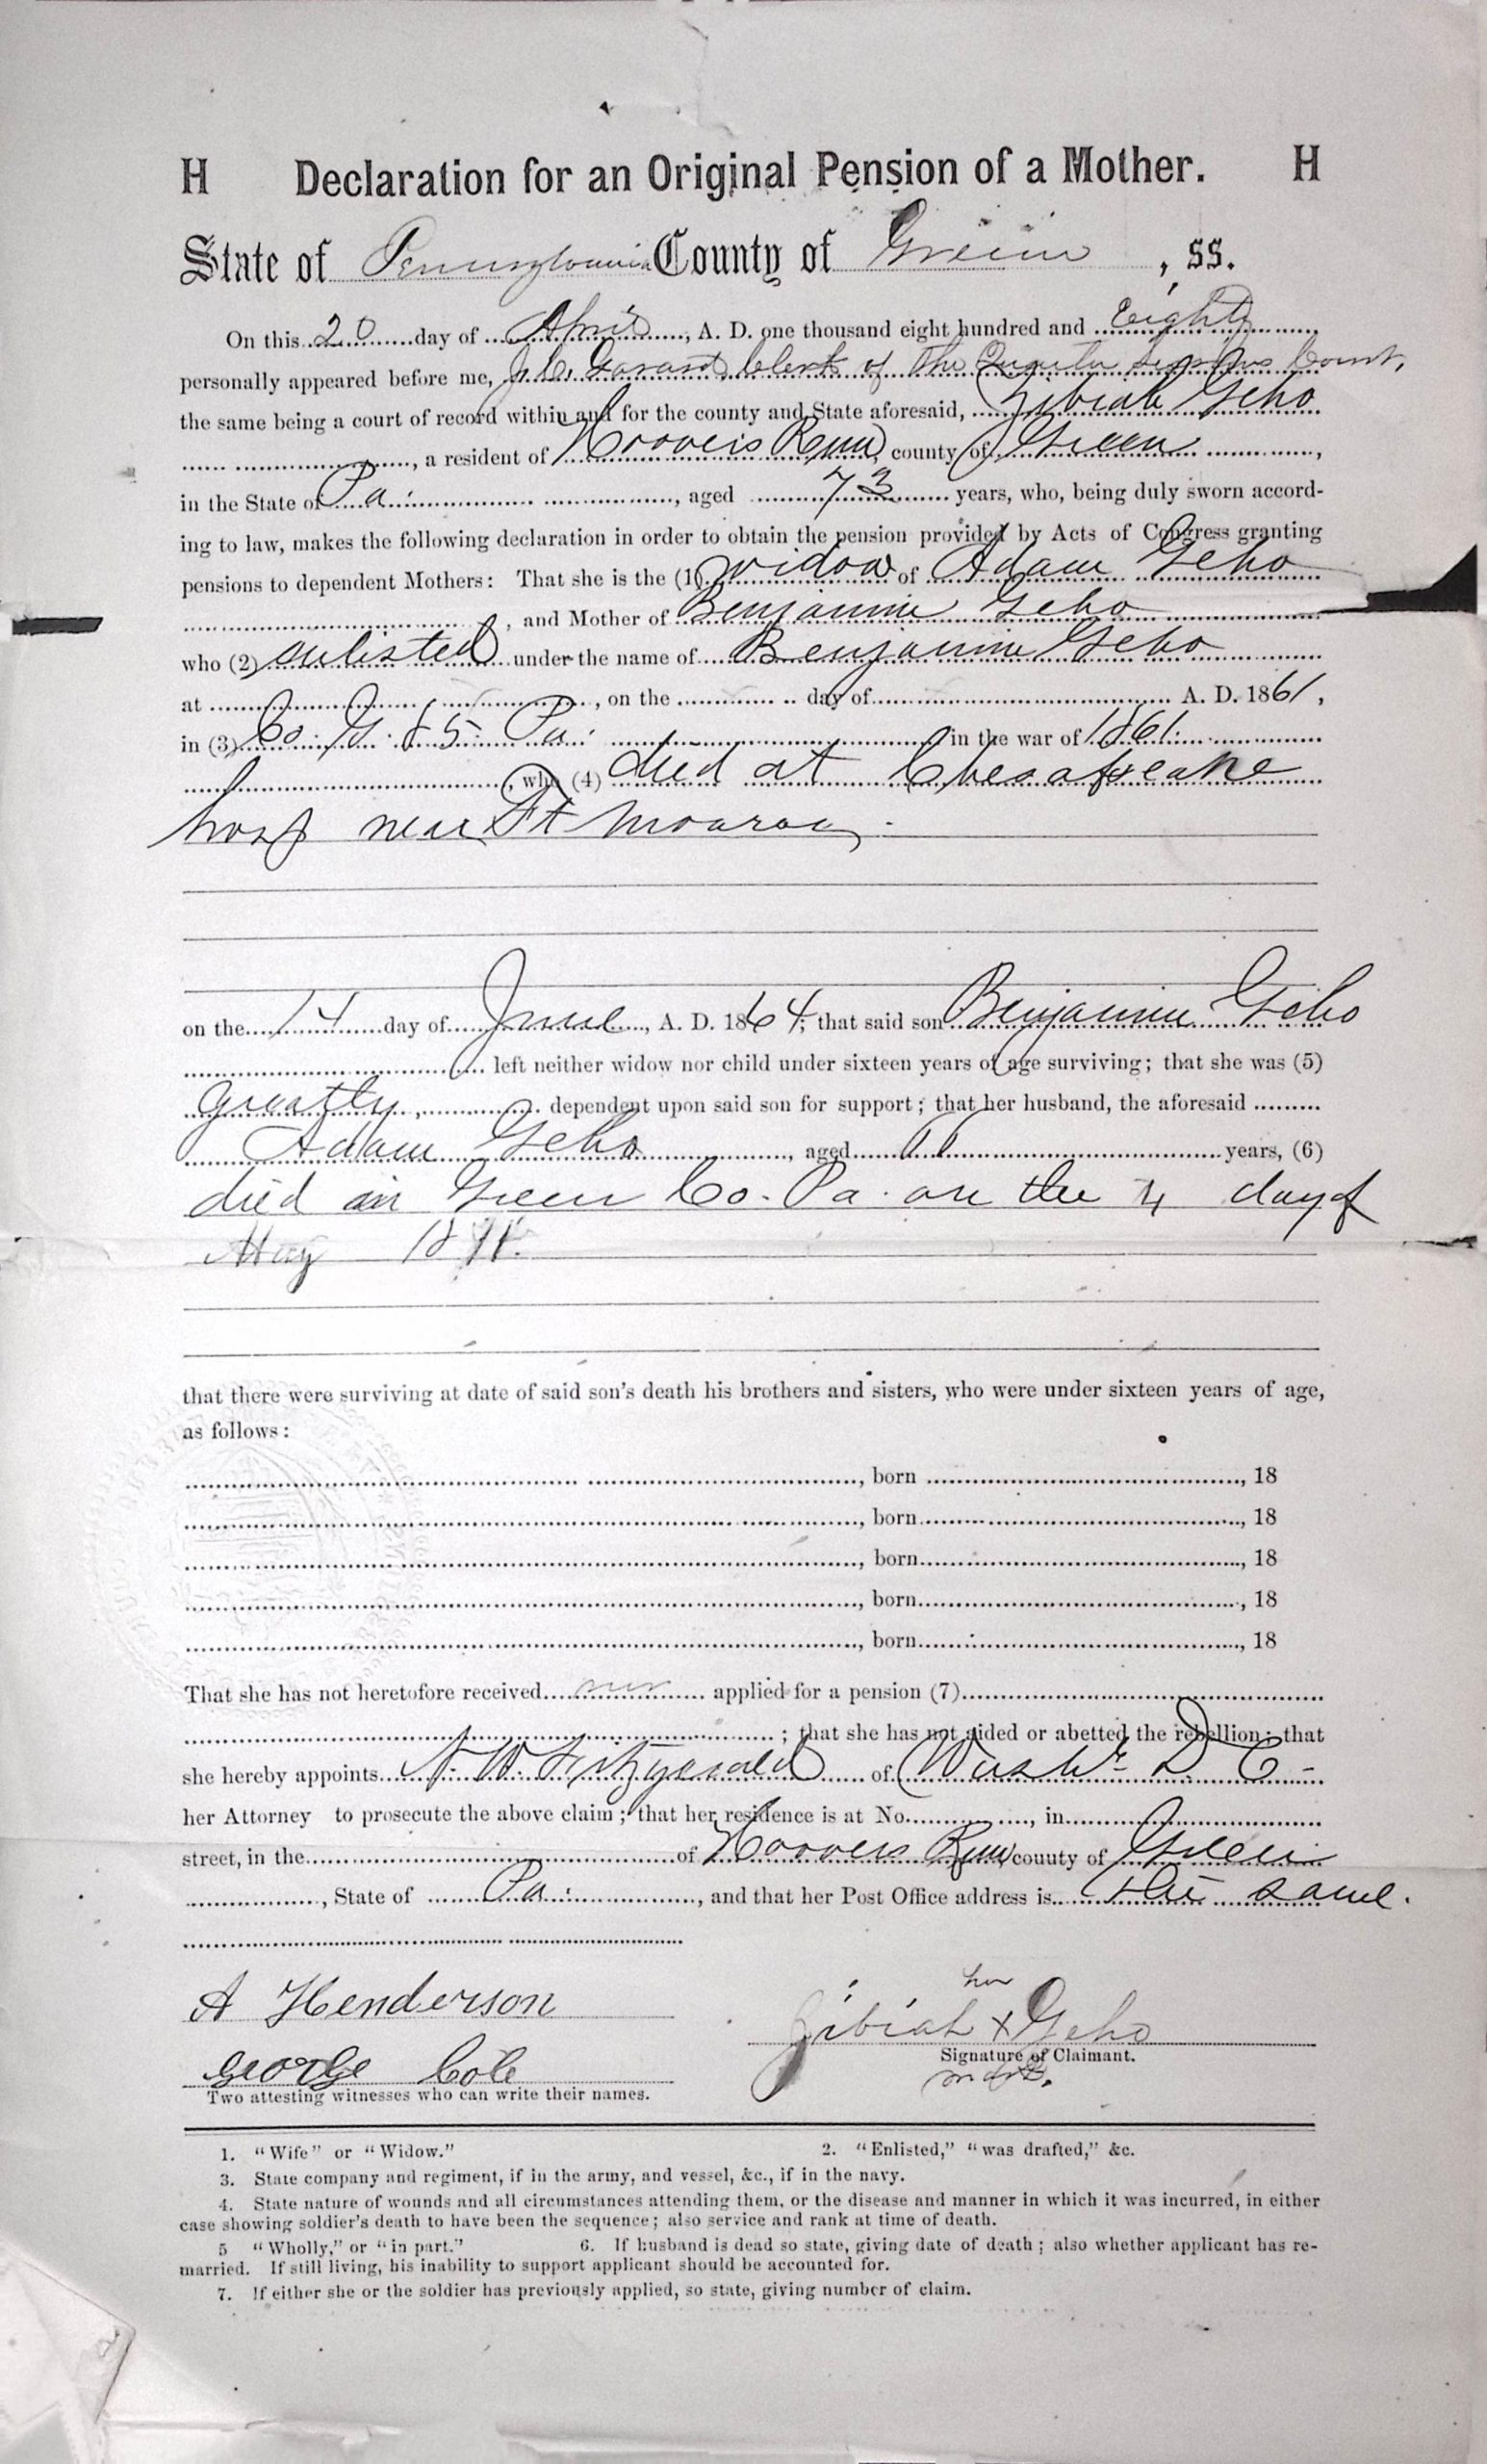 H Declaration for an Original Pension of a Mother. H
State of Pennsylvania County of Green , ss.
On this 20 day of April, A. D. one thousand eight hundred and Eighty
personally appeared before me, J. C. Clerk of the Quarter Sessions Court,
the same being a court of record within and for the county and State aforesaid, Zibiah Geho
, a resident of Hoovers Run, county of Green ,
in the State of Pa. , aged 73 years, who, being duly sworn accord-
ing to law, makes the following declaration in order to obtain the pension provided by Acts of Congress granting
pensions to dependent Mothers: That she is the (1) widow of Adam Geho
, and Mother of Benjamin Geho
who (2) enlisted under the name of Benjamin Geho
at , on the day of A. D. 1861,
in (3) Co. 85 Pa. in the war of 1861.
, who (4) died at Chesapeake
hosp near Ft Monroe.
on the 14 day of June, A. D. 1864; that said son Benjamin Geho
left neither widow nor child under sixteen years of age surviving; that she was (5)
Greatly, dependent upon said son for support; that her husband, the aforesaid
Adam Geho , aged years, (6)
died in Green Co. Pa. on the 4 day of
May
that there were surviving at date of said son's death his brothers and sisters, who were under sixteen years of age,
as follows:
, born , 18
, born , 18
, born , 18
, born , 18
, born , 18
That she has not heretofore received nor applied for a pension (7)
; that she has not aided or abetted the rebellion; that
she hereby appoints N. W. Fitzgerald of Washn D. C.
her Attorney to prosecute the above claim; that her residence is at No. , in
street, in the of Hoovers Run county of Green
, State of Pa. , and that her Post Office address is the same.
A Henderson
her
Zibiah x Geho
George Cole
Signature of Claimant.
mark.
Two attesting witnesses who can write their names.
1. "Wife" or "Widow." 2. "Enlisted," "was drafted," &c.
3. State company and regiment, if in the army, and vessel, &c., if in the navy.
4. State nature of wounds and all circumstances attending them, or the disease and manner in which it was incurred, in either
case showing soldier's death to have been the sequence; also service and rank at time of death.
5 "Wholly," or "in part." 6. If husband is dead so state, giving date of death; also whether applicant has re-
married. If still living, his inability to support applicant should be accounted for.
7. If either she or the soldier has previously applied, so state, giving number of claim.